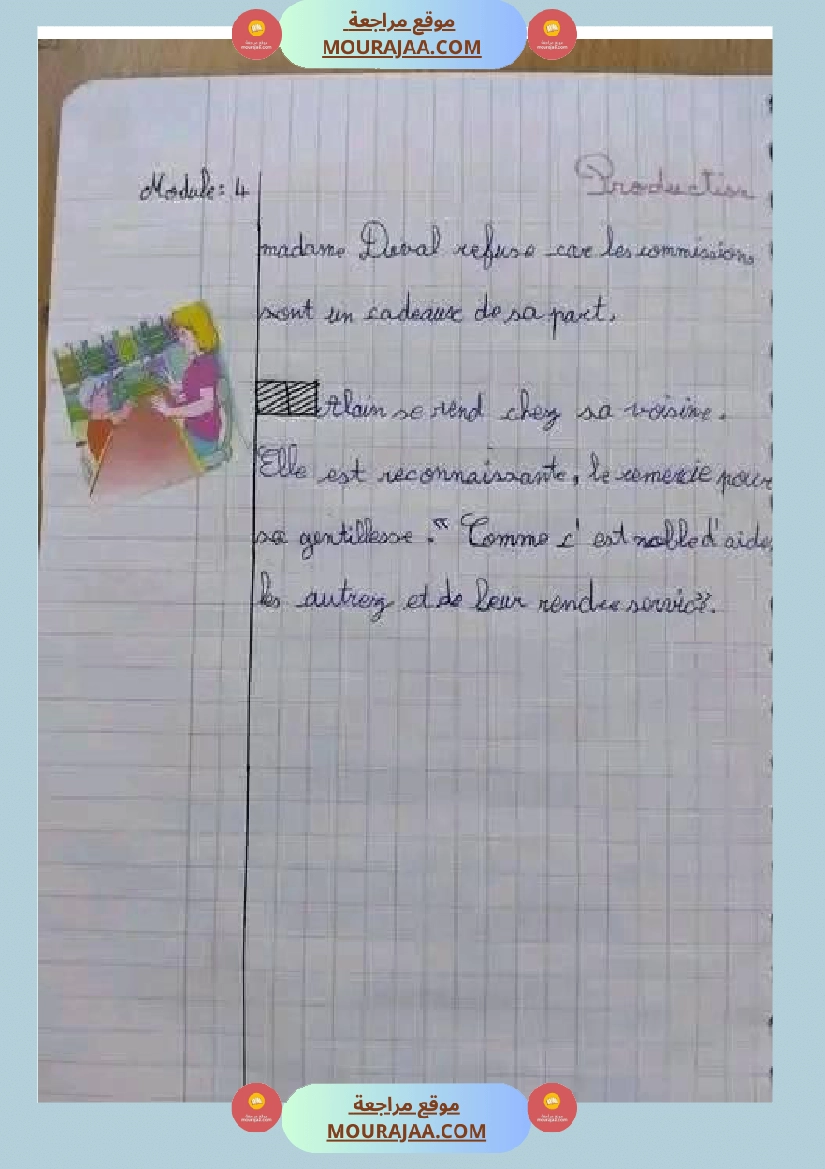 موقع مراجعة
MOURAJAA.COM
Module: 4
Production
madame Duval refuse car les commissions
sont un cadeaux de sa part.
Alain se rend chez sa voisine.
Elle est reconnaissante, le remercie pour
sa gentillesse. "Comme c'est noble d'aider
les autrez et de leur rendre service".
موقع مراجعة
MOURAJAA.COM